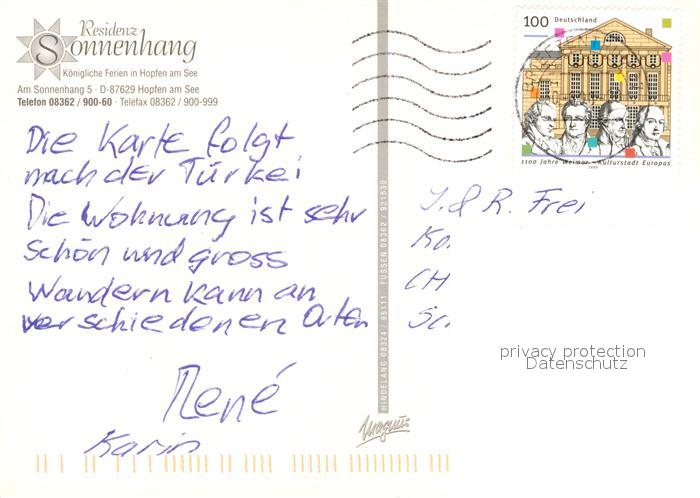 Residenz
Sonnenhang
Königliche Ferien in Hopfen am See
Am Sonnenhang 5 · D-87629 Hopfen am See
Telefon 08362 / 900-60 · Telefax 08362 / 900-999
Die Karte folgt
nach der Türkei
Die Wohnung ist sehr
schön und gross
Wandern kann an
verschiedenen Orten
René
Karin
HINDELANG 08324 / 95111 FÜSSEN 08362 / 921530
Magnus
100 Deutschland
1100 Jahre Weimar – Kulturstadt Europas
1999
J. & R. Frei
Ko.
CH
Sc.
privacy protection
Datenschutz